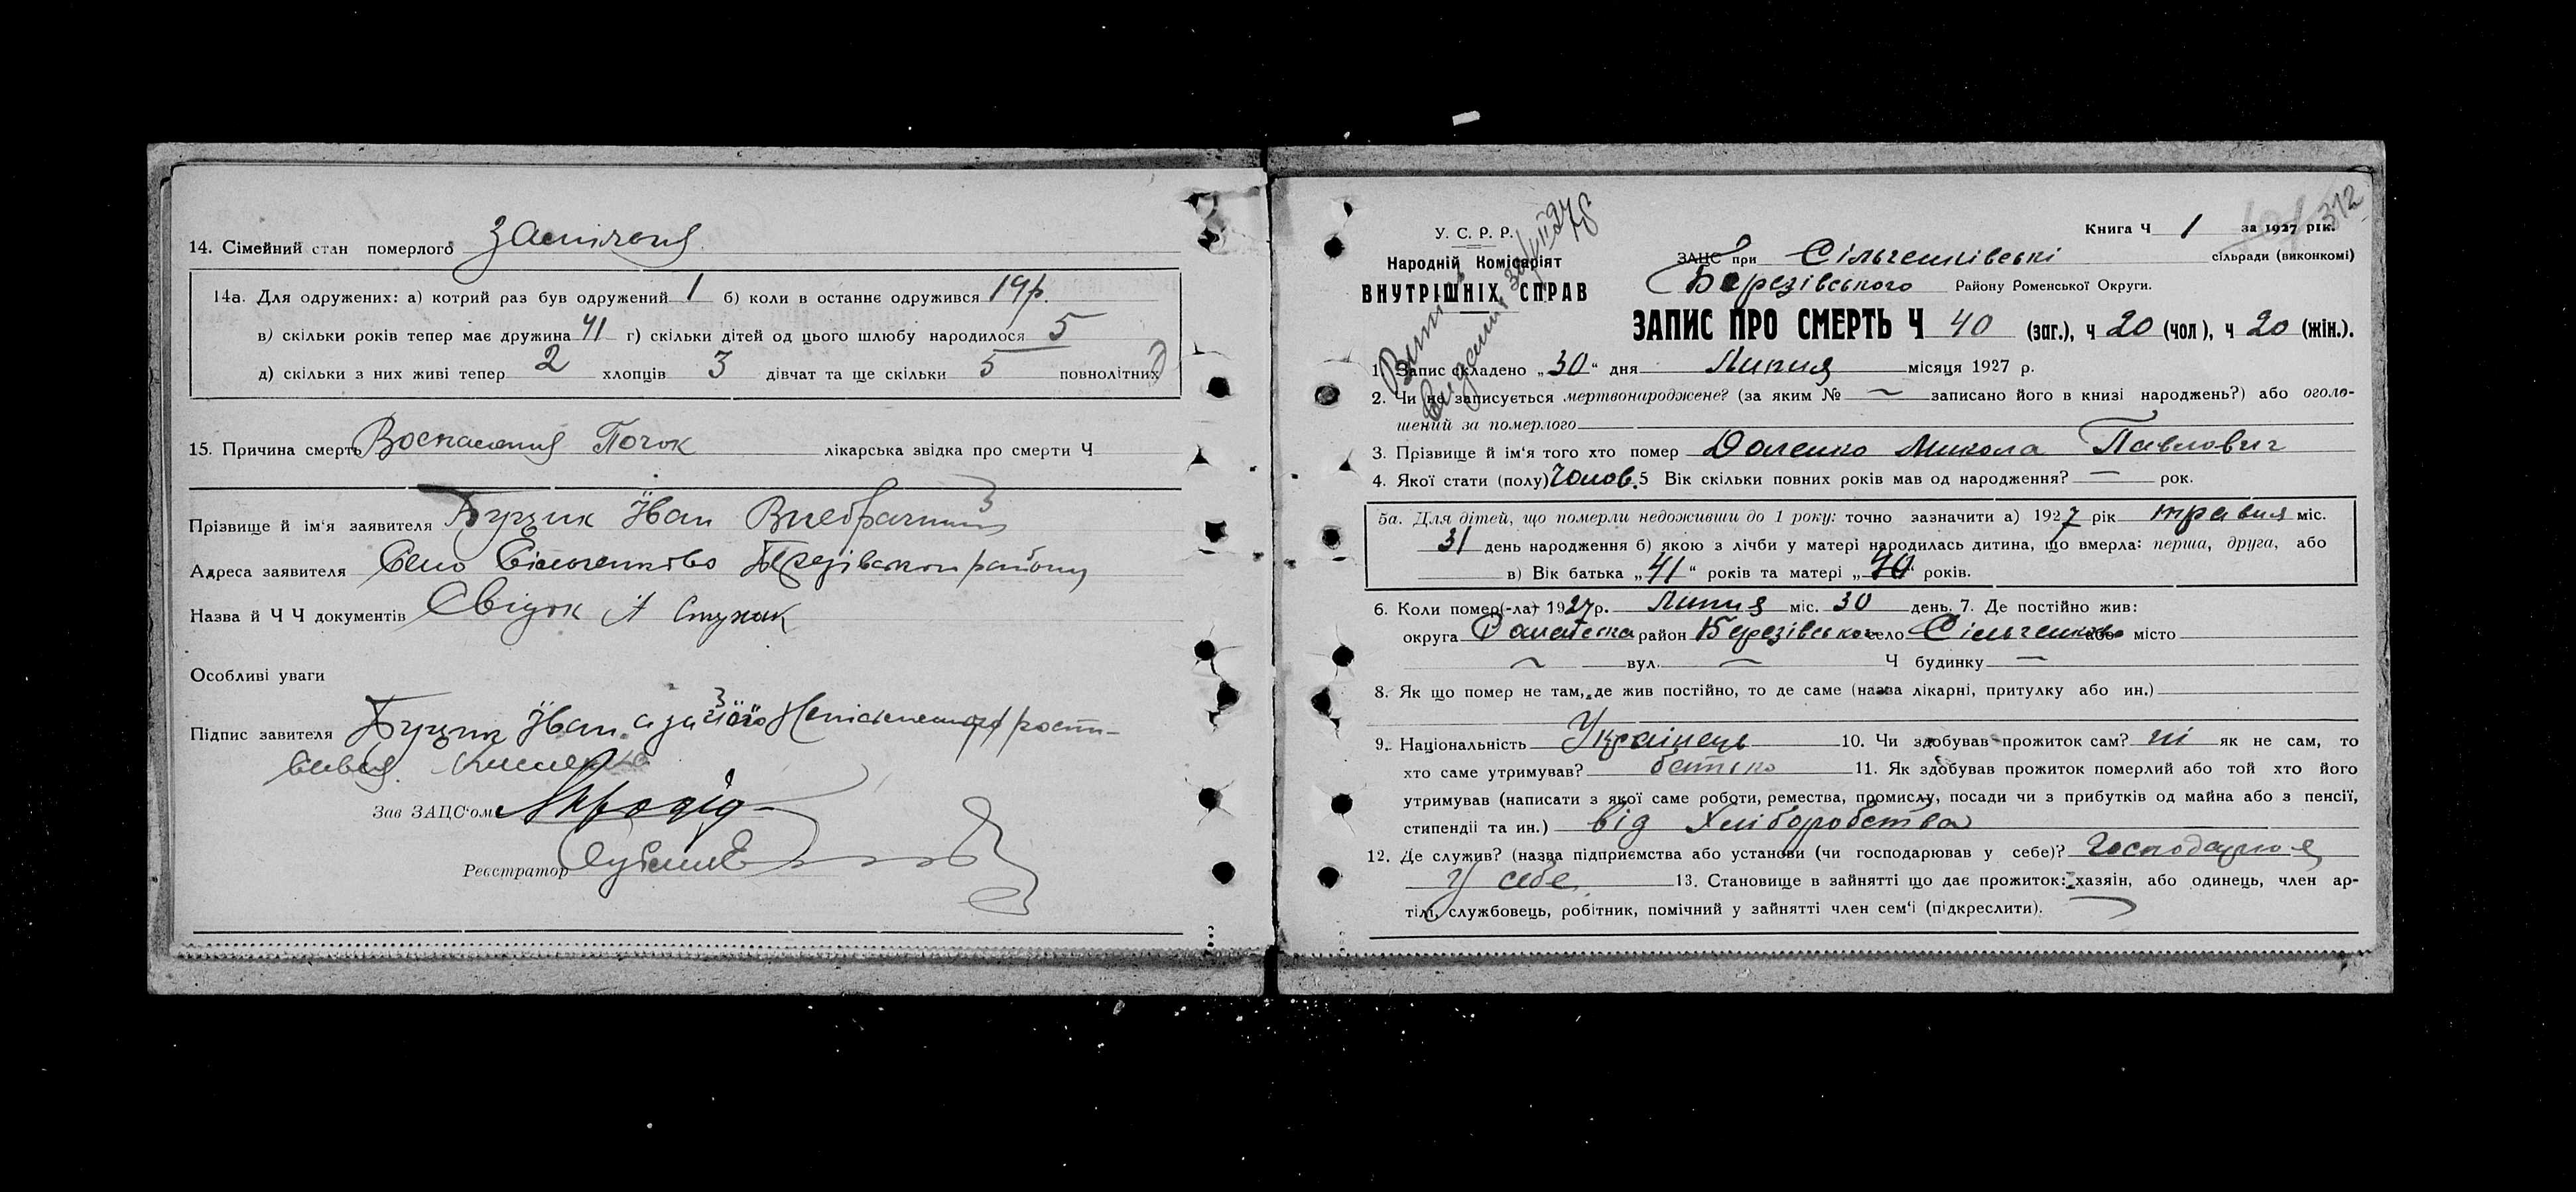 14. Сімейний стан померлого
14а. Для одружених: а) котрий раз був одружений 1 б) коли в останнє одружився 19р.
в) скільки років тепер має дружина 41 г) скільки дітей од цього шлюбу народилося 5
д) скільки з них живі тепер 2 хлопців 3 дівчат та ще скільки 5 повнолітних
15. Причина смерть Воспаления Почок лікарська звідка про смерти Ч
Прізвище й ім'я заявителя Буцик Іван
Адреса заявителя Село Сільченково Березівського району
Назва й Ч Ч документів Свідок А
Особливі уваги
Підпис завителя Буцик Іван а за його
Зав ЗАЦС'ом
Реєстратор
312
У. С. Р. Р.
Народній Комісаріят
ВНУТРІШНІХ СПРАВ
Книга Ч 1 за 1927 рік.
ЗАЦС при Сільченківські сільради (виконкомі)
Березівського Району Роменської Округи.
ЗАПИС ПРО СМЕРТЬ Ч 40 (заг.), ч 20 (чол), ч 20 (жін.).
1. Запис складено „30" дня Липня місяця 1927 р.
2. Чи не записується мертвонароджене? (за яким № — записано його в книзі народжень?) або оголо-
шений за померлого
3. Прізвище й ім'я того хто помер Доленко Микола Павлович
4. Якої стати (полу) Чолов. 5 Вік скільки повних років мав од народження? — рок.
5а. Для дітей, що померли недоживши до 1 року: точно зазначити а) 1927 рік травня міс.
31 день народження б) якою з лічби у матері народилась дитина, що вмерла: перша, друга, або
в) Вік батька „41" років та матері „40" років.
6. Коли помер(-ла) 1927р. Липня міс. 30 день. 7. Де постійно жив:
округа район Березівського село Сільченково або місто
— вул. — Ч будинку —
8. Як що помер не там, де жив постійно, то де саме (назва лікарні, притулку або ин.)
9. Національність Українець 10. Чи здобував прожиток сам? ні як не сам, то
хто саме утримував? батько 11. Як здобував прожиток померлий або той хто його
утримував (написати з якої саме роботи, ремества, промислу, посади чи з прибутків од майна або з пенсії,
стипендії та ин.) від Хліборобства
12. Де служив? (назва підприємства або установи (чи господарював у себе)?
у себе 13. Становище в зайнятті що дає прожиток: хазяін, або одинець, член ар-
тілі, службовець, робітник, помічний у зайнятті член сем'і (підкреслити).